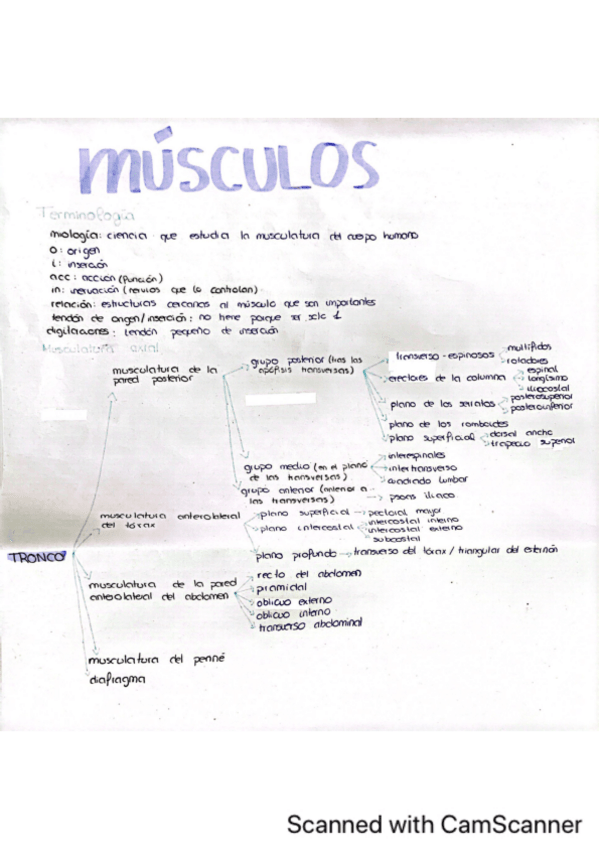 MÚSCULOS
Terminología
miología: ciencia que estudia la musculatura del cuerpo humano
O: origen
i: inserción
acc: acción (función)
in: inervación (nervios que lo controlan)
relación: estructuras cercanas al músculo que son importantes
tendón de origen/inserción: no tiene porque ser solo 1
digitaciones: tendón pequeño de inserción
Musculatura axial
musculatura de la pared posterior
grupo posterior (tras las apófisis transversas)
transverso-espinosos
multífidos
rotadores
erectores de la columna
espinal
longísimo
iliocostal
plano de los serratos
posterosuperior
posteroinferior
plano de los romboides
plano superficial
dorsal ancho
trapecio superior
grupo medio (en el plano de las transversas)
interespinales
intertransverso
cuadrado lumbar
grupo anterior (anterior a las transversas)
psoas ilíaco
musculatura anterolateral del tórax
plano superficial
pectoral mayor
plano intercostal
intercostal interno
intercostal externo
subcostal
plano profundo
transverso del tórax / triangular del esternón
TRONCO
musculatura de la pared anterolateral del abdomen
recto del abdomen
piramidal
oblicuo externo
oblicuo interno
transverso abdominal
musculatura del periné
diafragma
Scanned with CamScanner